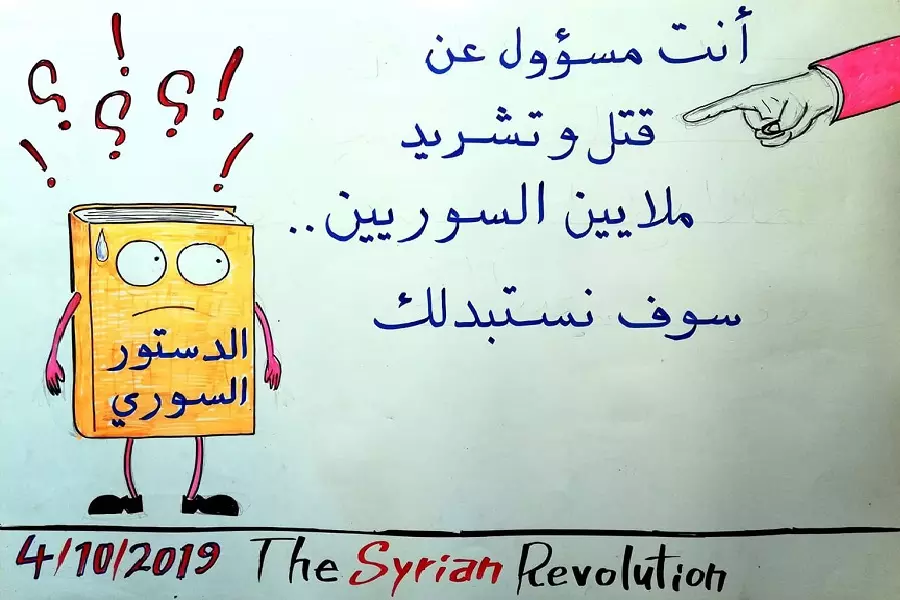 أنت مسؤول عن
قتل و تشريد
ملايين السوريين..
سوف نستبدلك
؟ ! ؟ ؟ !
! !
الدستور
السوري
4/10/2019 The Syrian Revolution